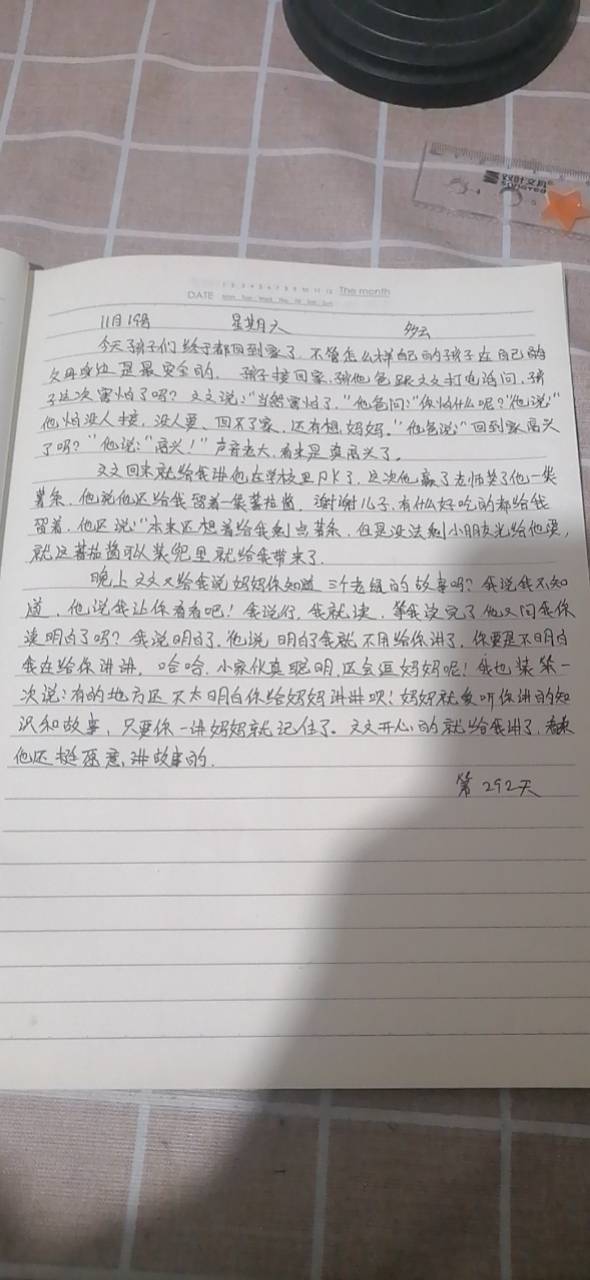 双叶文具®
DATE 1 2 3 4 5 6 7 8 9 10 11 12 The month
Mon Tue Wed Thu Fri Sat Sun
星期六 多云
今天孩子们终于都回到家了,不管怎么样自己的孩子在自己的
父母身边是最安全的。孩子接回家,孩他爸跟文文打电话问,孩
子这次害怕了吗?文文说:“当然害怕了。”他爸问:“你怕什么呢?”他说:“
他怕没人接,没人要,回不了家,还有想妈妈。”他爸说:“回到家高兴
了吗?”他说:“高兴!”声音老大,看来是真高兴了。
文文回来就给我讲他在学校里PK了,这次他赢了老师奖了他一袋
薯条,他说他还给我留着一袋蕃茄酱,谢谢儿子,有什么好吃的都给我
留着,他还说:“本来还想着给我剩点薯条,但是没法剩小朋友光给他要,
就这蕃茄酱可以装兜里就给我带来了。
晚上文文又给我说妈妈你知道三个老组的故事吗?我说我不知
道,他说我让你看看吧!我说行,我就读,等我读完了他又问我你
读明白了吗?我说明白了,他说明白了我就不用给你讲了,你要是不明白
我在给你讲讲。哈哈,小家伙真聪明,还会逗妈妈呢!我也装笨一
次说:有的地方还不太明白你给妈妈讲讲呗!妈妈就爱听你讲的知
识和故事,只要你一讲妈妈就记住了。文文开心的就给我讲了,看来
他还挺愿意讲故事的。
第292天